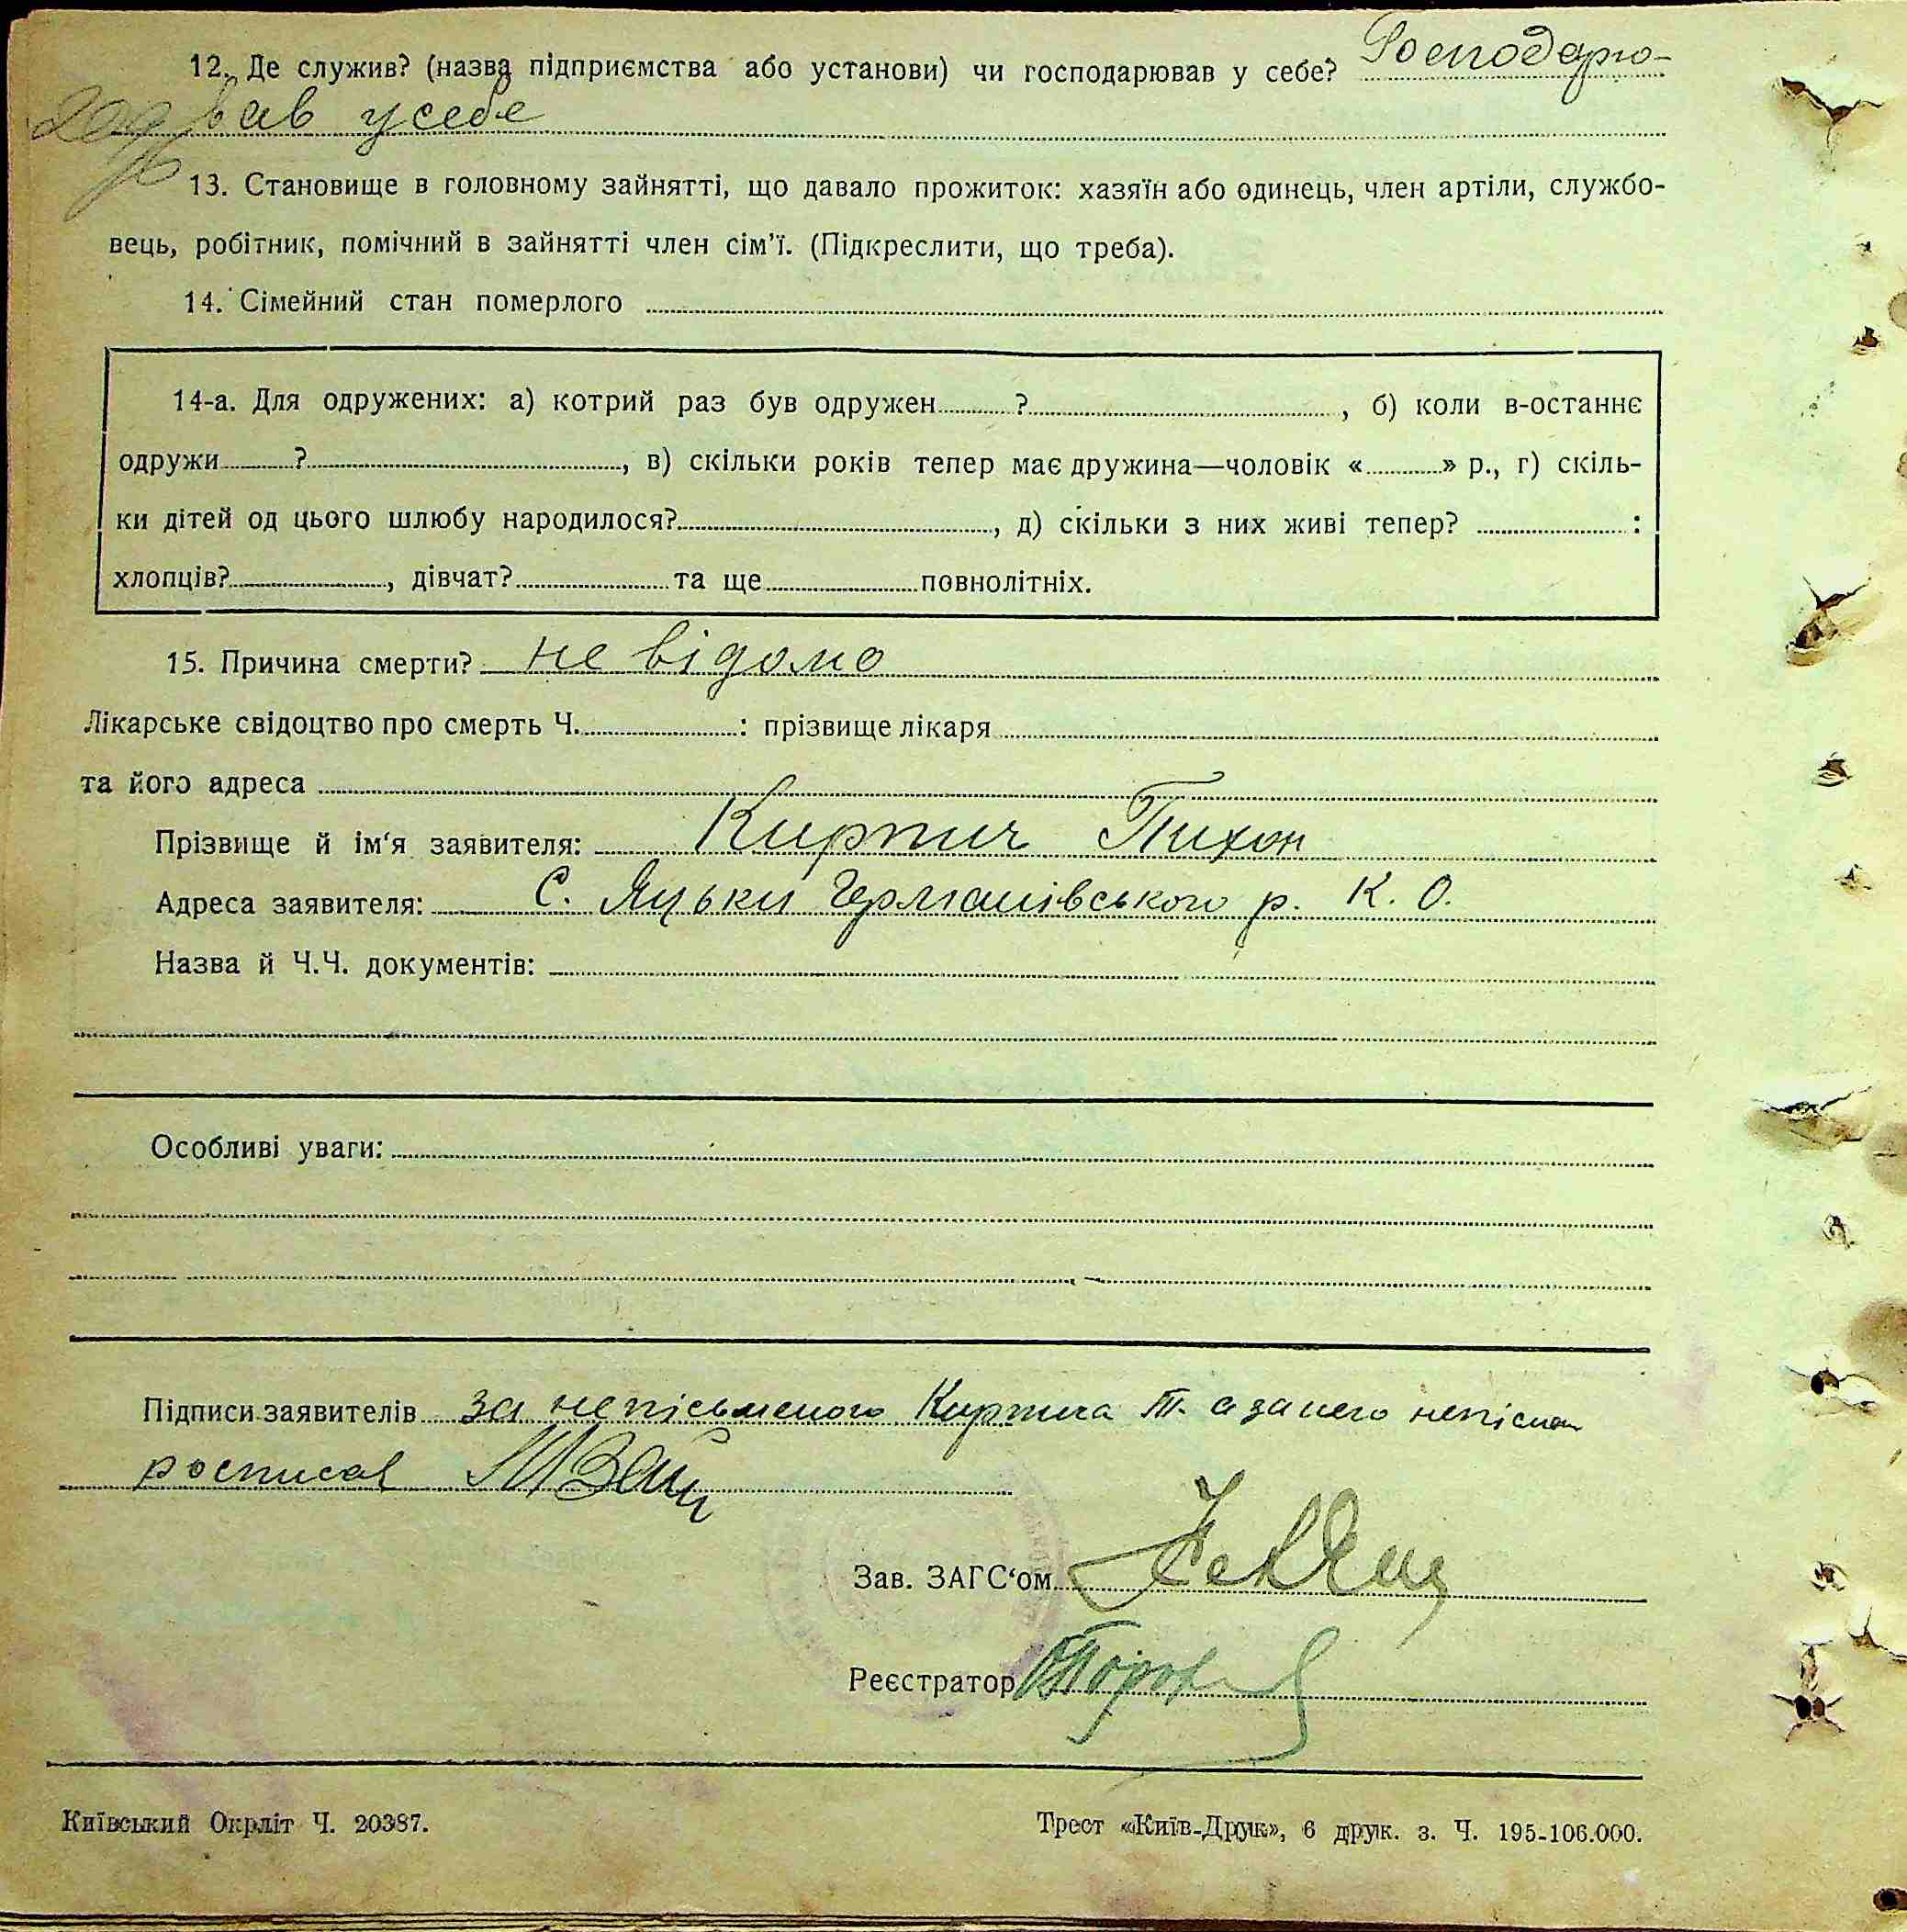 12. Де служив? (назва підприємства або установи) чи господарював у себе? Господарю-
вав у себе
13. Становище в головному зайнятті, що давало прожиток: хазяїн або одинець, член артіли, службо-
вець, робітник, помічний в зайнятті член сім’ї. (Підкреслити, що треба).
14. Сімейний стан померлого
14-а. Для одружених: а) котрий раз був одружен ? , б) коли в-останнє
одружи ? , в) скільки років тепер має дружина—чоловік « » р., г) скіль-
ки дітей од цього шлюбу народилося? , д) скільки з них живі тепер? :
хлопців? , дівчат? та ще повнолітніх.
15. Причина смерти? не відомо
Лікарське свідоцтво про смерть Ч. : прізвище лікаря
та його адреса
Прізвище й ім‘я заявителя: Кирпич Тихон
Адреса заявителя: С. Яцьки Германівського р. К. О.
Назва й Ч.Ч. документів:
Особливі уваги:
Підписи заявителів за непісьменого Кирпича Т. а за него
росписав
Зав. ЗАГС‘ом
Реєстратор
Київський Окрліт Ч. 20387.
Трест «Київ-Друк», 6 друк. з. Ч. 195-106.000.